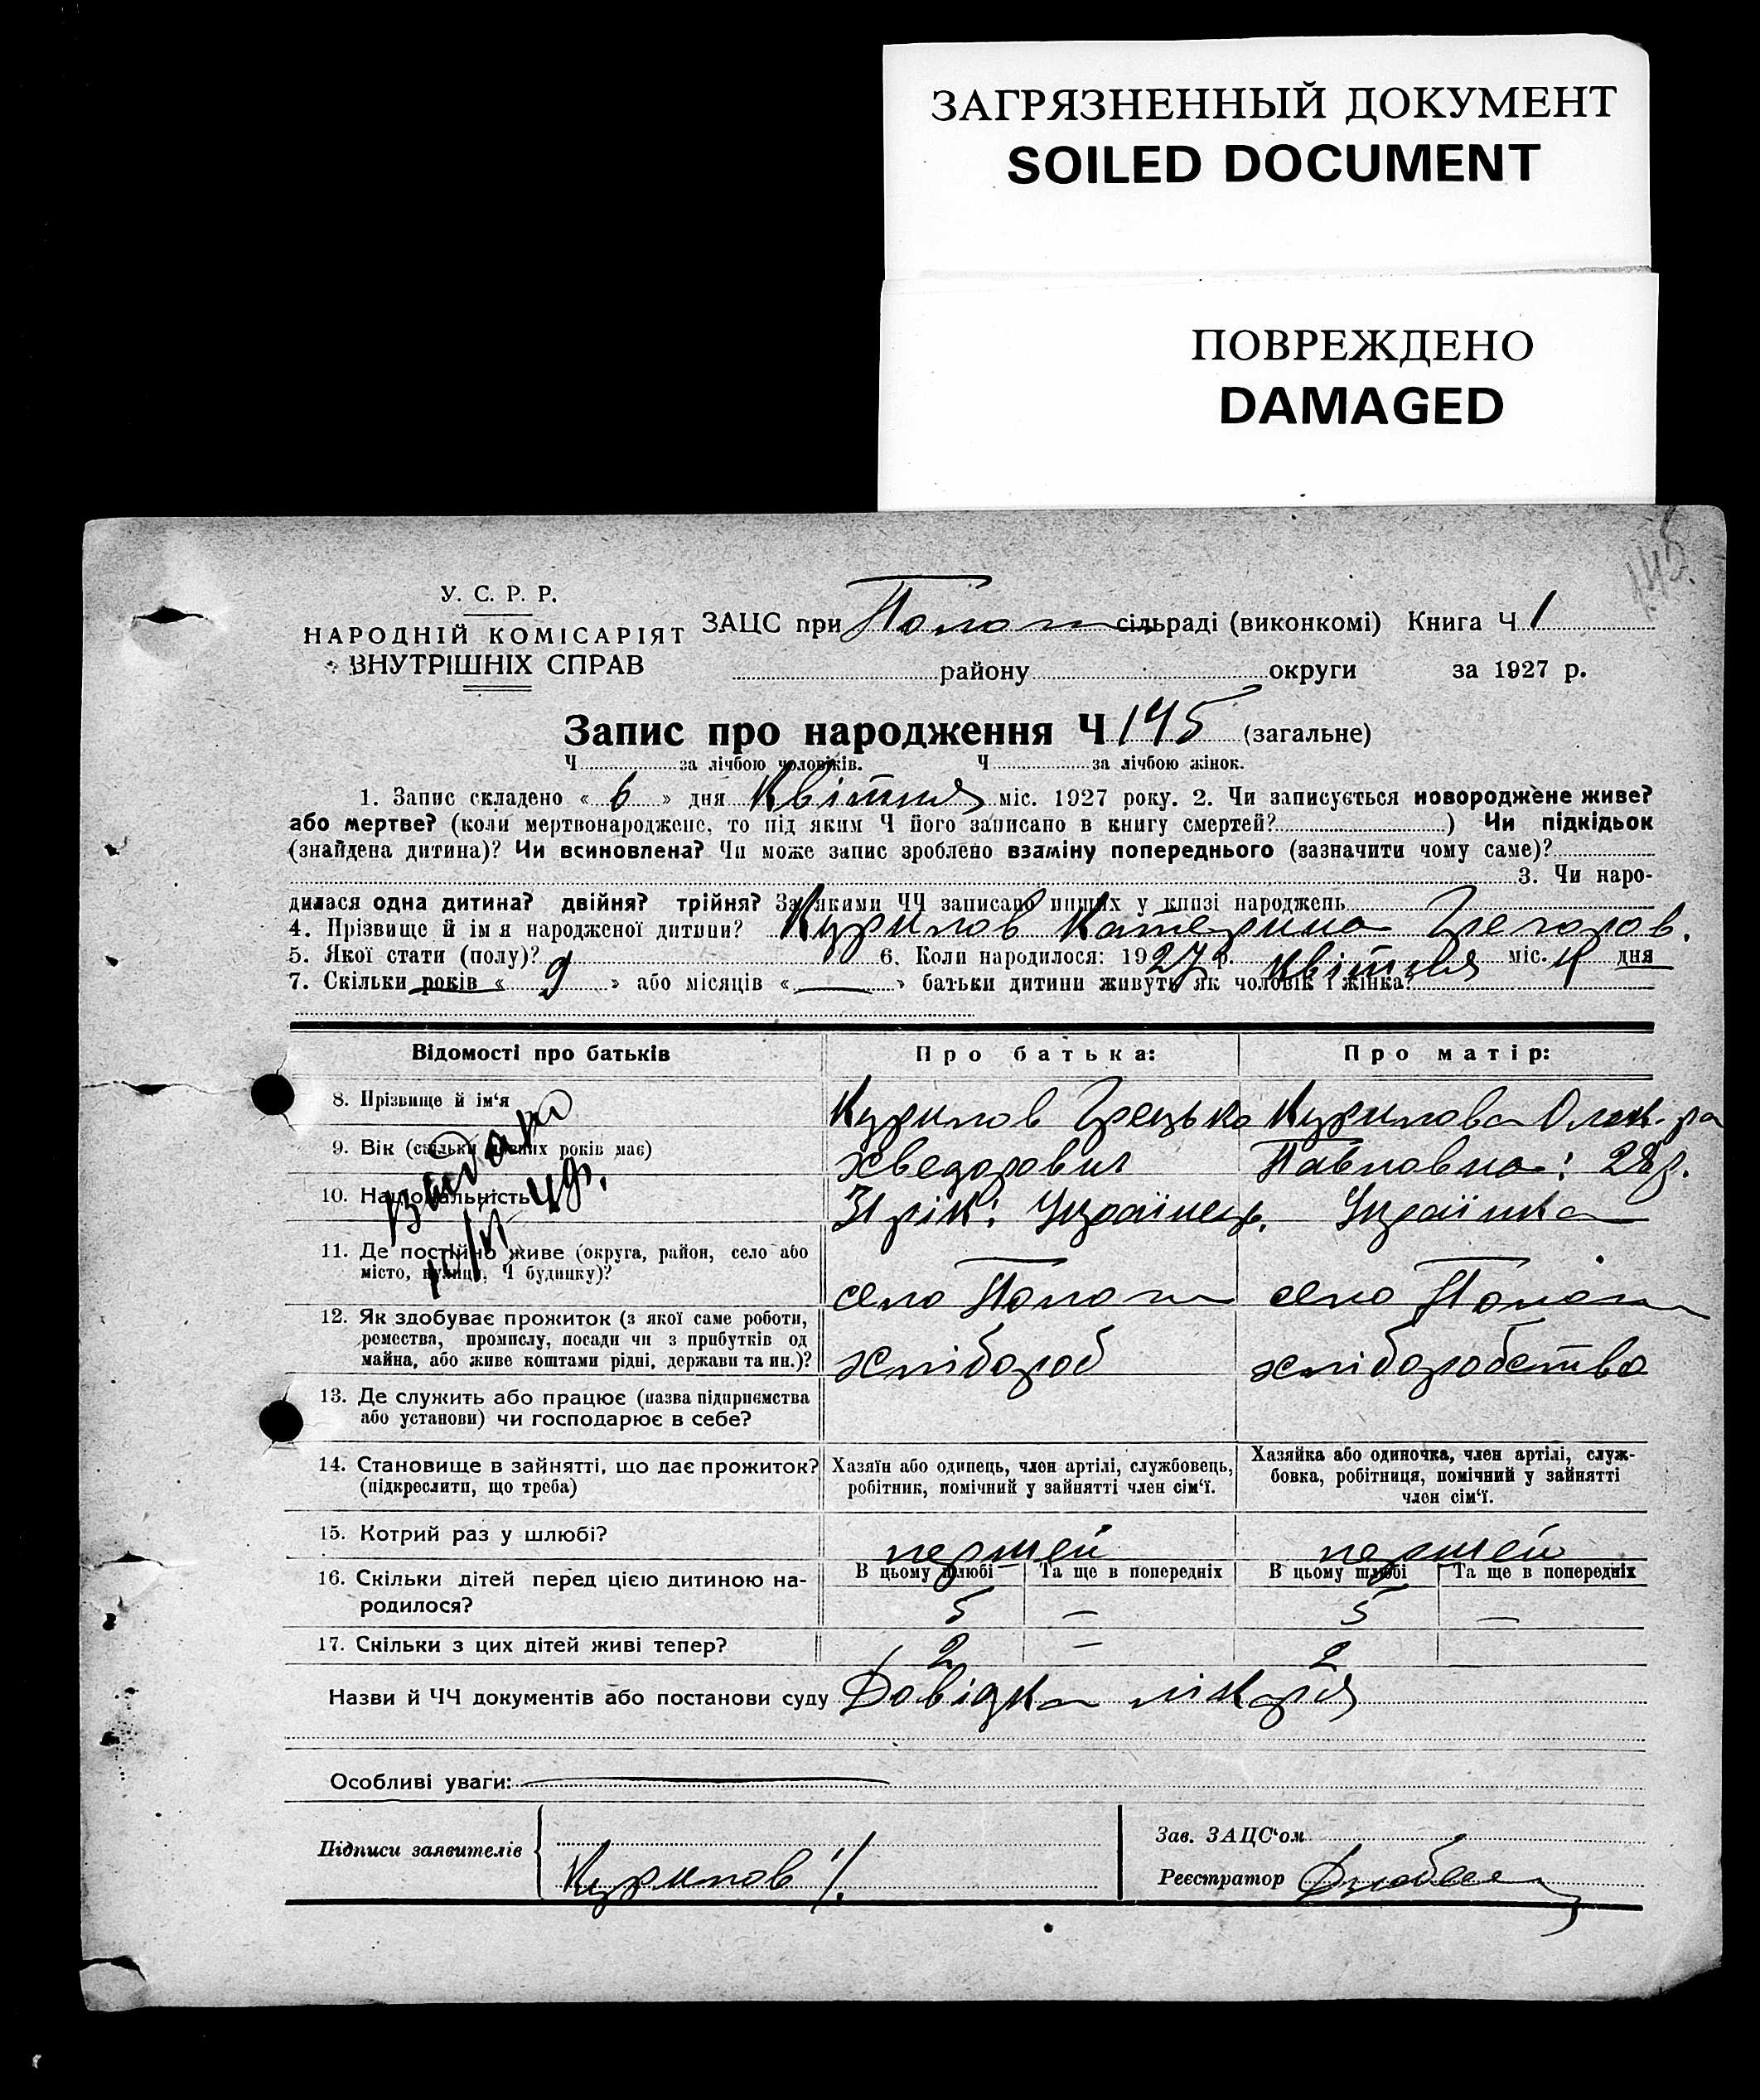 ЗАГРЯЗНЕННЫЙ ДОКУМЕНТ
SOILED DOCUMENT
ПОВРЕЖДЕНО
DAMAGED
145.
У. С. Р. Р.
НАРОДНІЙ КОМІСАРІЯТ
ВНУТРІШНІХ СПРАВ
ЗАЦС при сільраді (виконкомі) Книга Ч 1
району округи за 1927 р.
Запис про народження Ч 145 (загальне)
Ч за лічбою чоловіків. Ч за лічбою жінок.
1. Запис складено « 6 » дня Квітня міс. 1927 року. 2. Чи записується новороджене живе?
або мертве? (коли мертвонароджене, то під яким Ч його записано в книгу смертей? ) Чи підкідьок
(знайдена дитина)? Чи всиновлена? Чи може запис зроблено взаміну попереднього (зазначити чому саме)?
3. Чи наро-
дилася одна дитина? двійня? трійня? За якими ЧЧ записано инших у книзі народжень
4. Прізвище й ім'я народженої дитини? Курилов Катерина Грегоров.
5. Якої стати (полу)? 6. Коли народилося: 1927 р. Квітня міс. 4 дня
7. Скільки років « 9 » або місяців « — » батьки дитини живуть як чоловік і жінка?
Відомості про батьків Про батька: Про матір:
8. Прізвище й ім'я Курилов Грецько Курилова
9. Вік (скільки повних років має) Хведорович Павловна: 28 р.
10. Національність 31 рік: Українець. Українка
11. Де постійно живе (округа, район, село або
місто, вулиця, Ч будинку)? село село
12. Як здобуває прожиток (з якої саме роботи,
ремества, промислу, посади чи з прибутків од
майна, або живе коштами рідні, держави та ин.)? хлібороб хліборобство
13. Де служить або працює (назва підприємства
або установи) чи господарює в себе?
14. Становище в зайнятті, що дає прожиток?
(підкреслити, що треба)
Хазяїн або одинець, член артілі, службовець,
робітник, помічний у зайнятті член сім'ї.
Хазяйка або одиночка, член артілі, служ-
бовка, робітниця, помічний у зайнятті
член сім'ї.
15. Котрий раз у шлюбі? першей першей
16. Скільки дітей перед цією дитиною на-
родилося?
В цьому шлюбі Та ще в попередніх В цьому шлюбі Та ще в попередніх
5 — 5 —
17. Скільки з цих дітей живі тепер? 2 — 2
Назви й ЧЧ документів або постанови суду Довідка лікаря
Особливі уваги:
Підписи заявителів Курилов
Зав. ЗАЦС'ом
Реєстратор